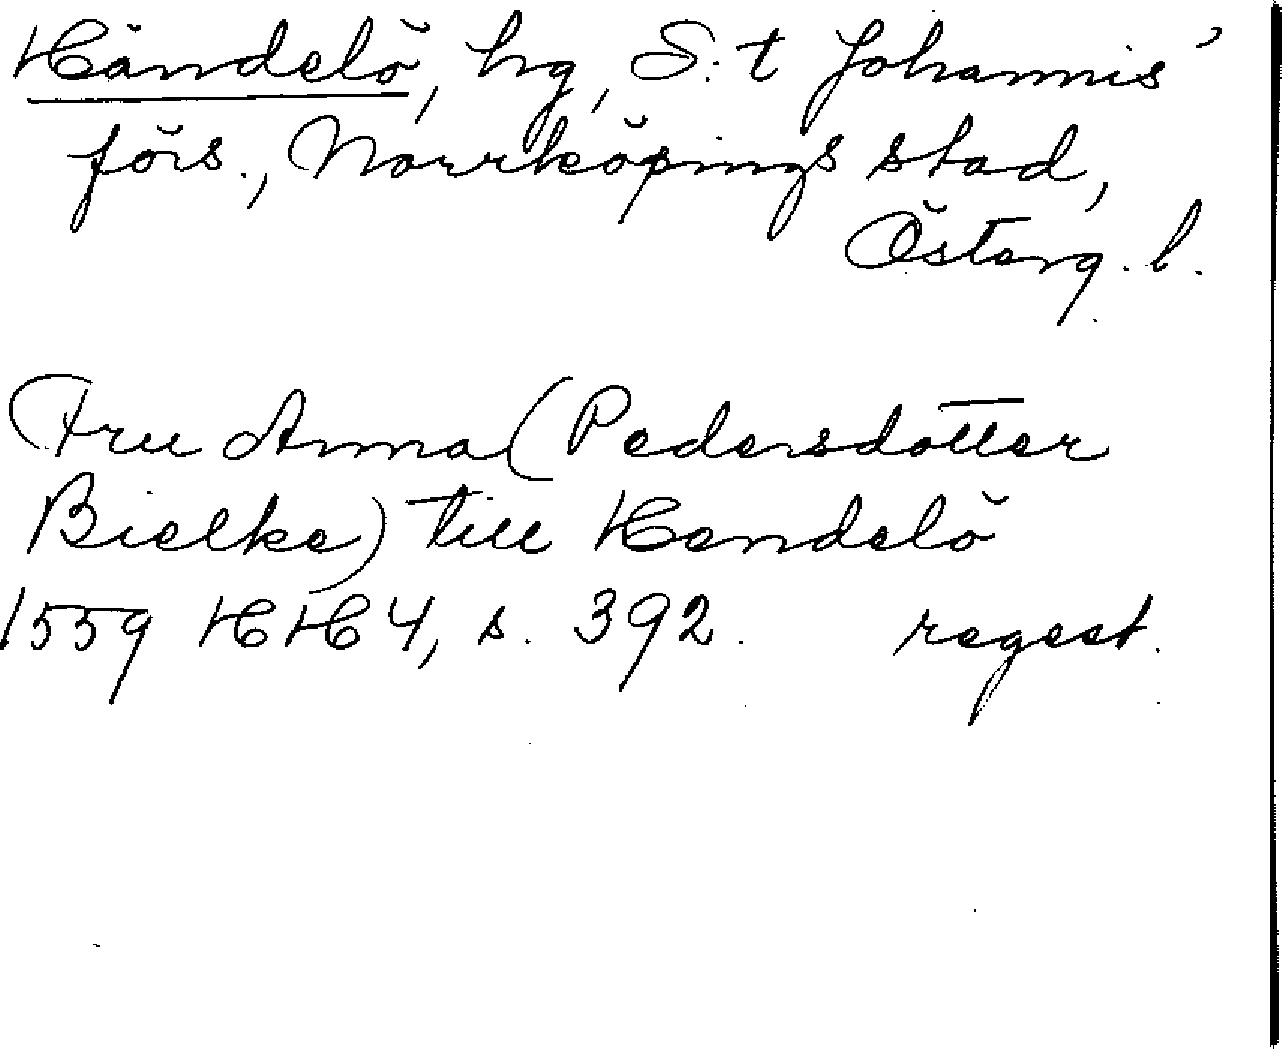 Händelö, hg, S:t Johannis'
förs., Norrköpings stad,
Österg. l.
Fru Anna (Pedersdotter
Bielke) till Hendelö
1559 HH 4, s. 392. regest.